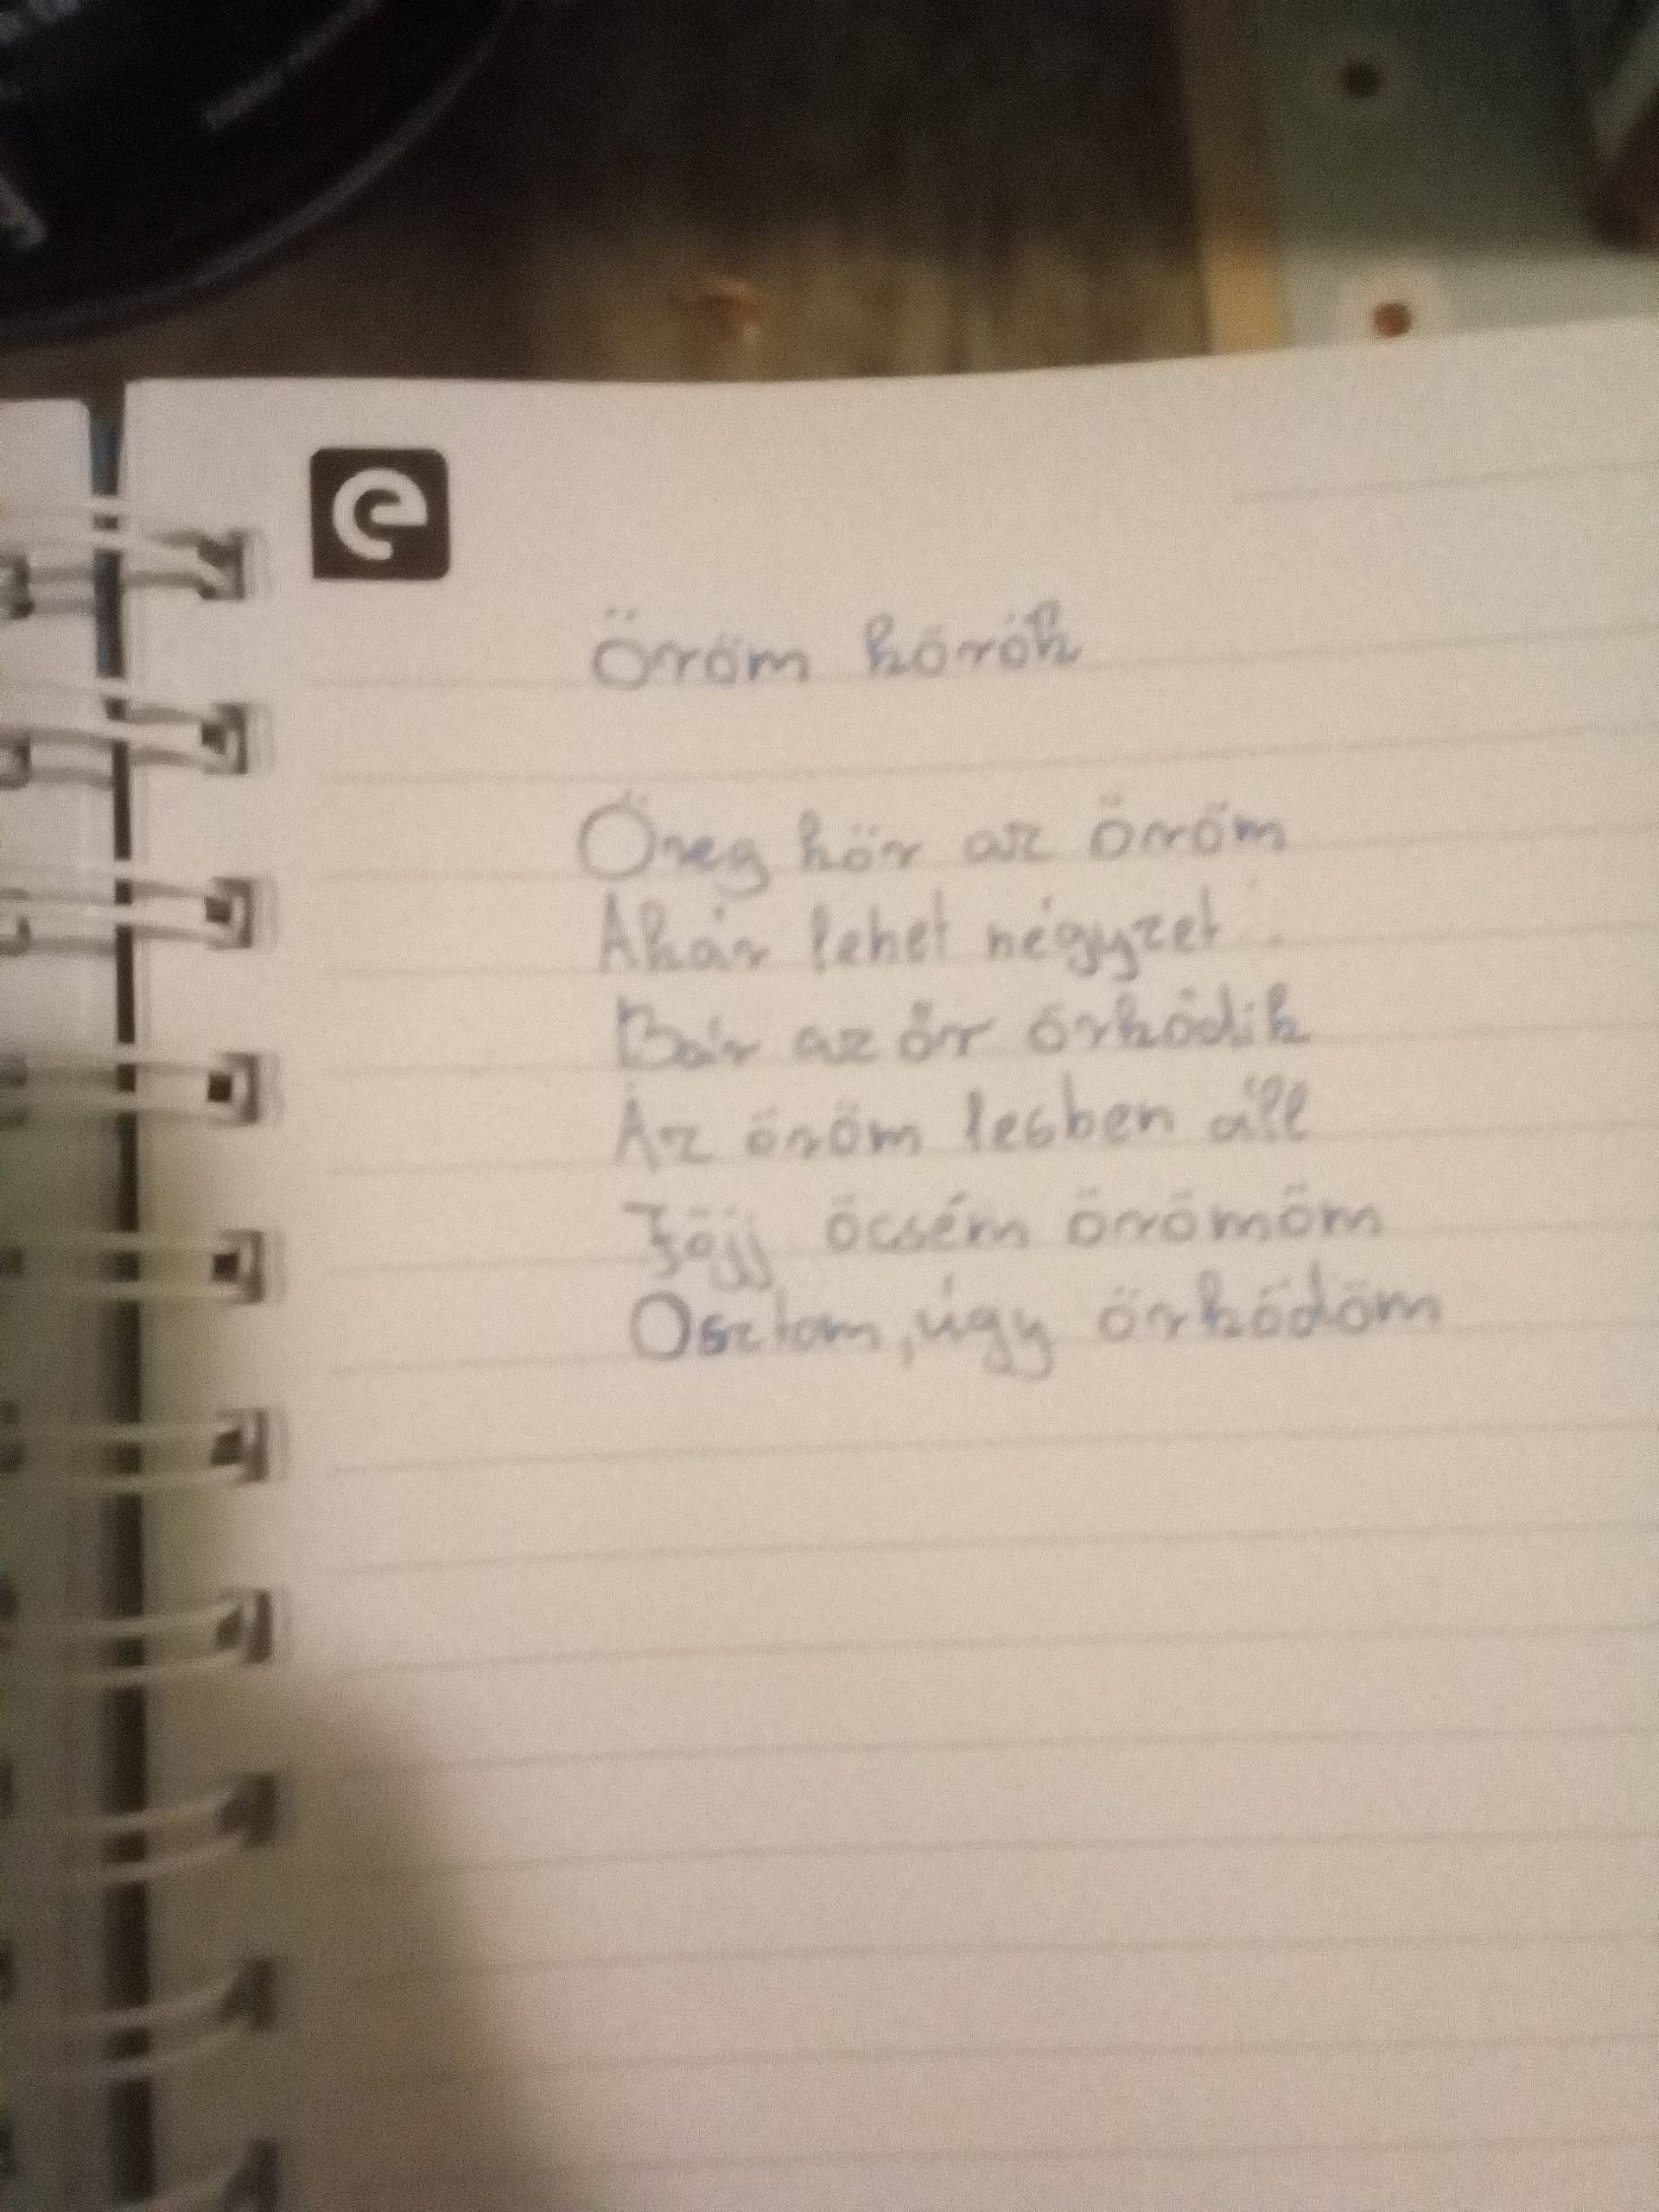 Öröm körök
Öreg kör az öröm
Akár lehet négyzet
Bár az őr őrködik
Az öröm lesben áll
Jöjj öcsém örömöm
Osztom, úgy őrködöm